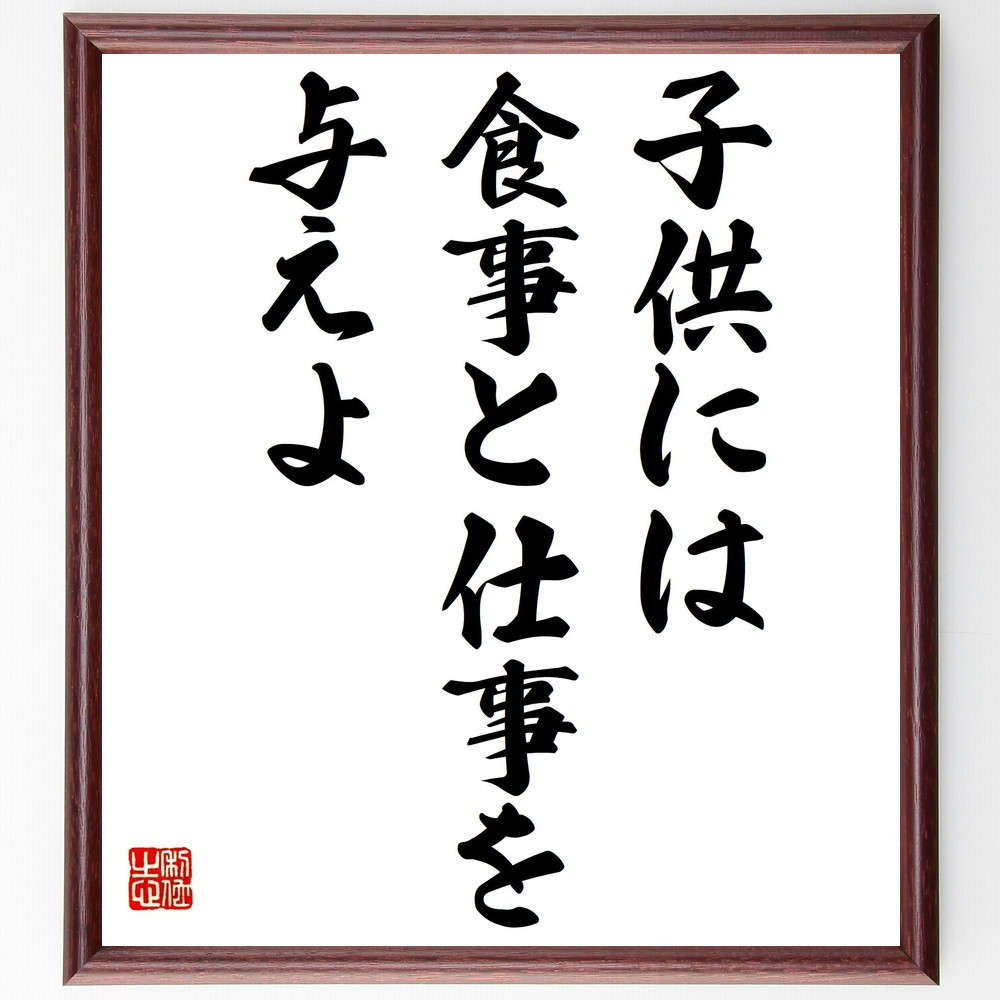 子供には
食事と仕事を
与えよ